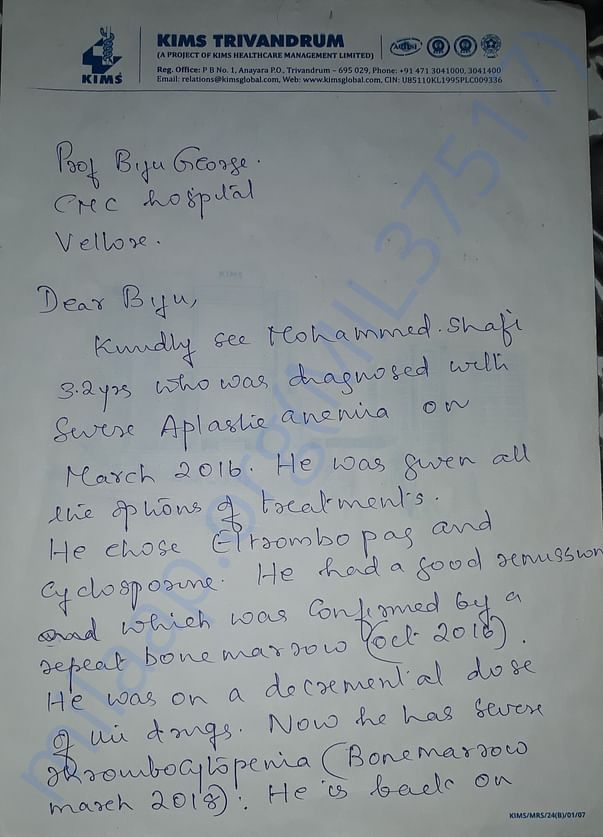 KIMS
KIMS TRIVANDRUM
(A PROJECT OF KIMS HEALTHCARE MANAGEMENT LIMITED)
Reg. Office: P B No. 1, Anayara P.O., Trivandrum – 695 029, Phone: +91 471 3041000, 3041400
Email: relations@kimsglobal.com, Web: www.kimsglobal.com, CIN: U85110KL1995PLC009336
Prof Biju George.
CMC hospital
Vellore.
Dear Biju,
Kindly see Mohammed. Shafi
32yrs who was diagnosed with
Severe Aplastic anemia on
March 2016. He was given all
the options of treatments.
He chose Eltrombopag and
Cyclosporine. He had a good remission
and which was confirmed by a
repeat bonemarrow (Oct 2016).
He was on a decremental dose
of drugs. Now he has severe
thrombocytopenia (Bonemarrow
march 2018). He is back on
KIMS/MRS/24(B)/01/07
milaap.org(MIL37517)